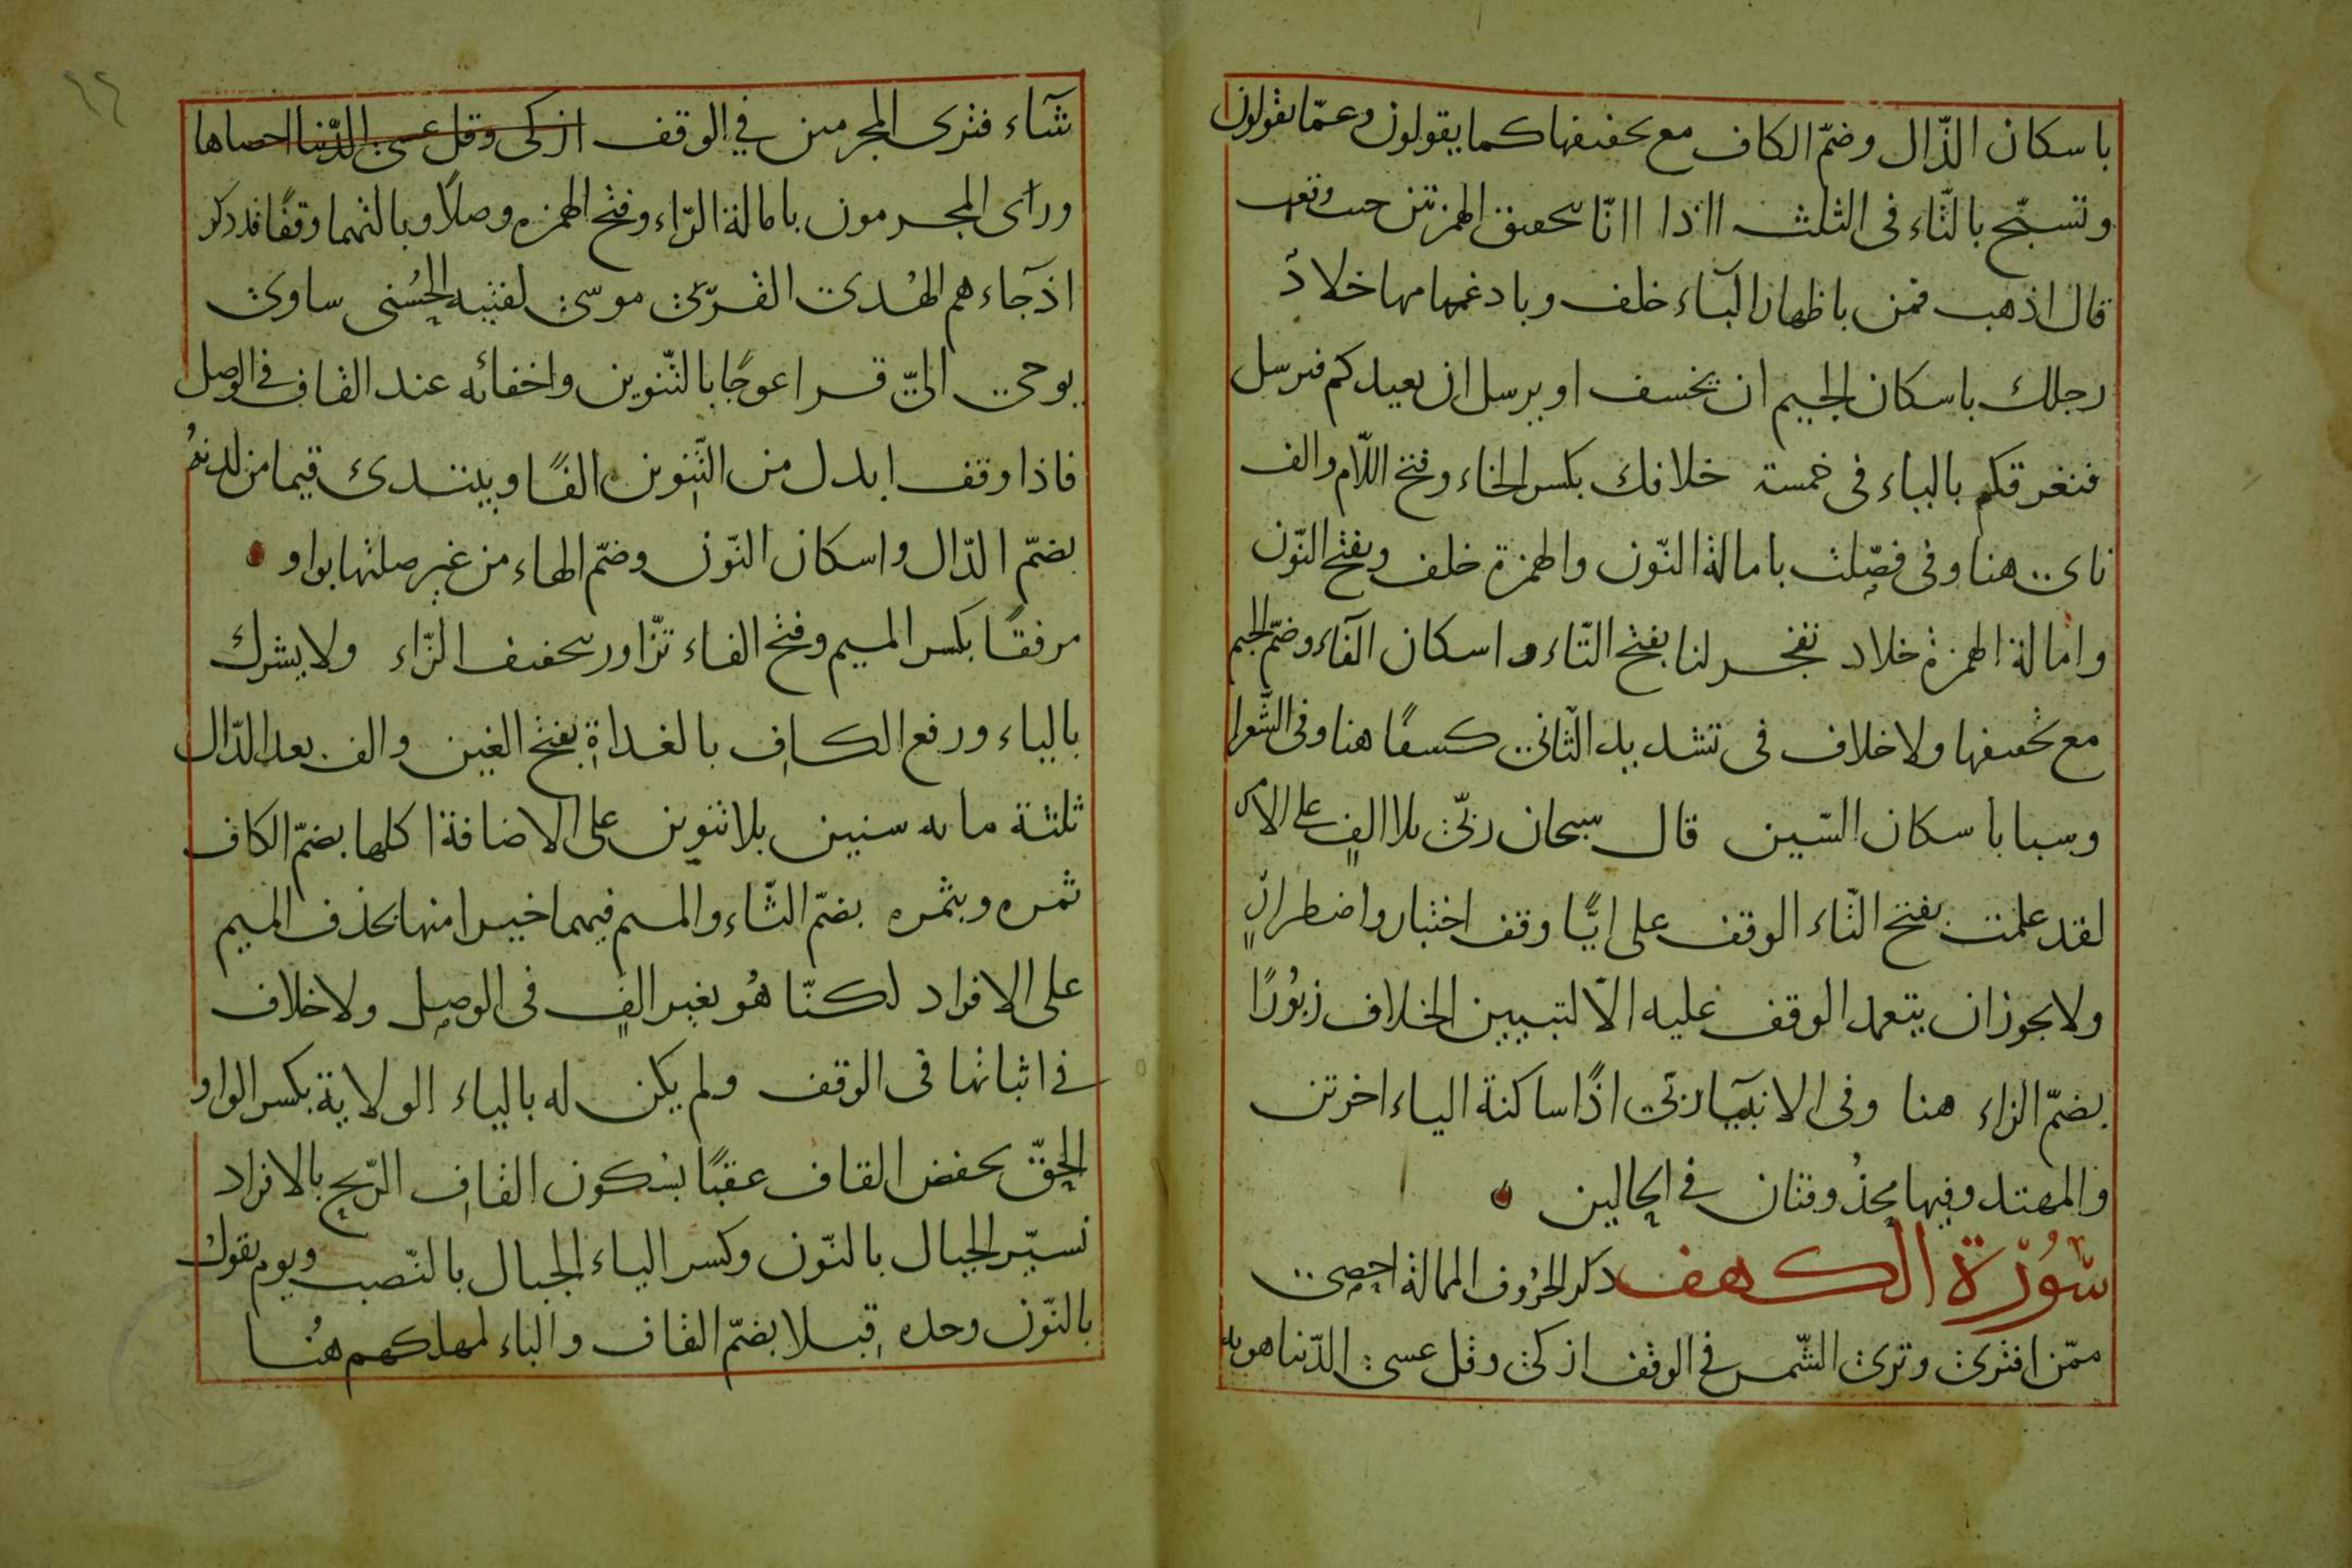 باسكان الذّال وضمّ الكاف مع تخفيفها كما يقولون وعمّا يقولون
وتسبّح بالتّاء فى الثلث ااذا اانّا بتحقيق الهمزتين حيث وقعت
قال اذهب فمن باظهار البآء خلف وبادغمها مها خلاد
رجلك باسكان الجيم ان يخسف او يرسل ان يعيدكم فيرسل
فيغرقكم بالياء فى خمسة خلافك بكسر الخاء وفتح اللّام والف
ناى هنا وفى فصّلت بامالة النّون والهمزة خلف وبفتح النّون
وامالة الهمزة خلاد تفجر لنا بفتح التّاء واسكان الفآء وضمّ الجيم
مع تخفيفها ولا خلاف فى تشديد الثّانى كسفًا هنا وفى الشّعرا
وسبا باسكان السّين قال سبحان ربّى بلا الفٍ على الامر
لقد علمت بفتح التّاء الوقف على ايًّا وقف اختبار واضطرارٍ
ولا يجوز ان يتعمد الوقف عليه الّا لتبيين الخلاف زبُورًا
بضمّ الزاء هنا وفى الانبيآ ربّى اذًا ساكنة الياء اخرتن
والمهتد وفيها محذُوفتان فى الحالين
سُّورَة الكهف ذكر الحرُوف الممالة احصى
ممّن افترى وترى الشّمس فى الوقف ازكى وقل عسى الدّنيا هويه
شآء فترى المجرمين في الوقف ازكى وقل عسى الدّنيا احصاها
ورأى المجرمون بامالة الرّاء وفتح الهمزه وصلًا وبالتهما وقفًا قد ذكر
اذجآءهم الهُدى القرّى موسّى لفتيه الحُسنى ساوى
يوحى الىّ قرا عوجًا بالتّنوين واخفائه عند القاف فى الوصل
فاذا وقف ابدل من التّنوين الفًا ويبتدئ قيما من لدنهُ
بضمّ الدّال واسكان النّون وضمّ الهاء من غير صلتها بواو
مرفقًا بكسر الميم وفتح الفاء تزّاور بتخفيف الزّاء ولا يشرك
بالياء ورفع الكاف بالغداةِ بفتح الغين والف بعد الدّال
ثلثة مايه سنين بلا تنوين على الاضافة اكلها بضمّ الكاف
ثمره وبثمره بضمّ الثّاء والميم فيهما خيرا منها بحذف الميم
على الافراد لكنّا هُو بغير الفٍ فى الوصل ولا خلاف
في اثباتها فى الوقف ولم يكن له بالياء الولاية بكسر الواو
الحقّ بخفض القاف عقبًا بسُكون القاف الرّيح بالافراد
نسيّر الجبال بالنّون وكسر الياء الجبال بالنّصب ويوم يقول
بالنّون وحده قبلا بضمّ القاف والباء لمهلكهم هُنا